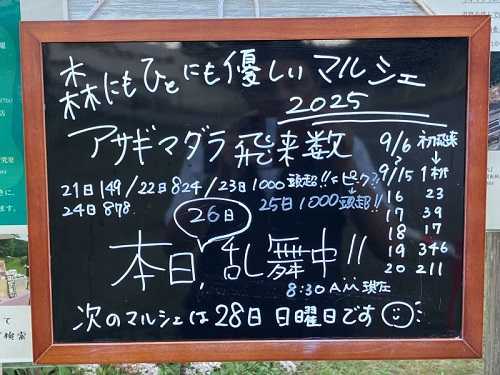 森にもひとにも優しいマルシェ
2025
アサギマダラ飛来数
9/6 初飛来
9/15 1頭
16 23
17 39
18 17
19 346
20 211
21日149/22日824/23日1000頭超!!←ピーク??
24日878
25日1000頭超!!
26日
本日,乱舞中!!
8:30AM現在
次のマルシェは28日 日曜日です